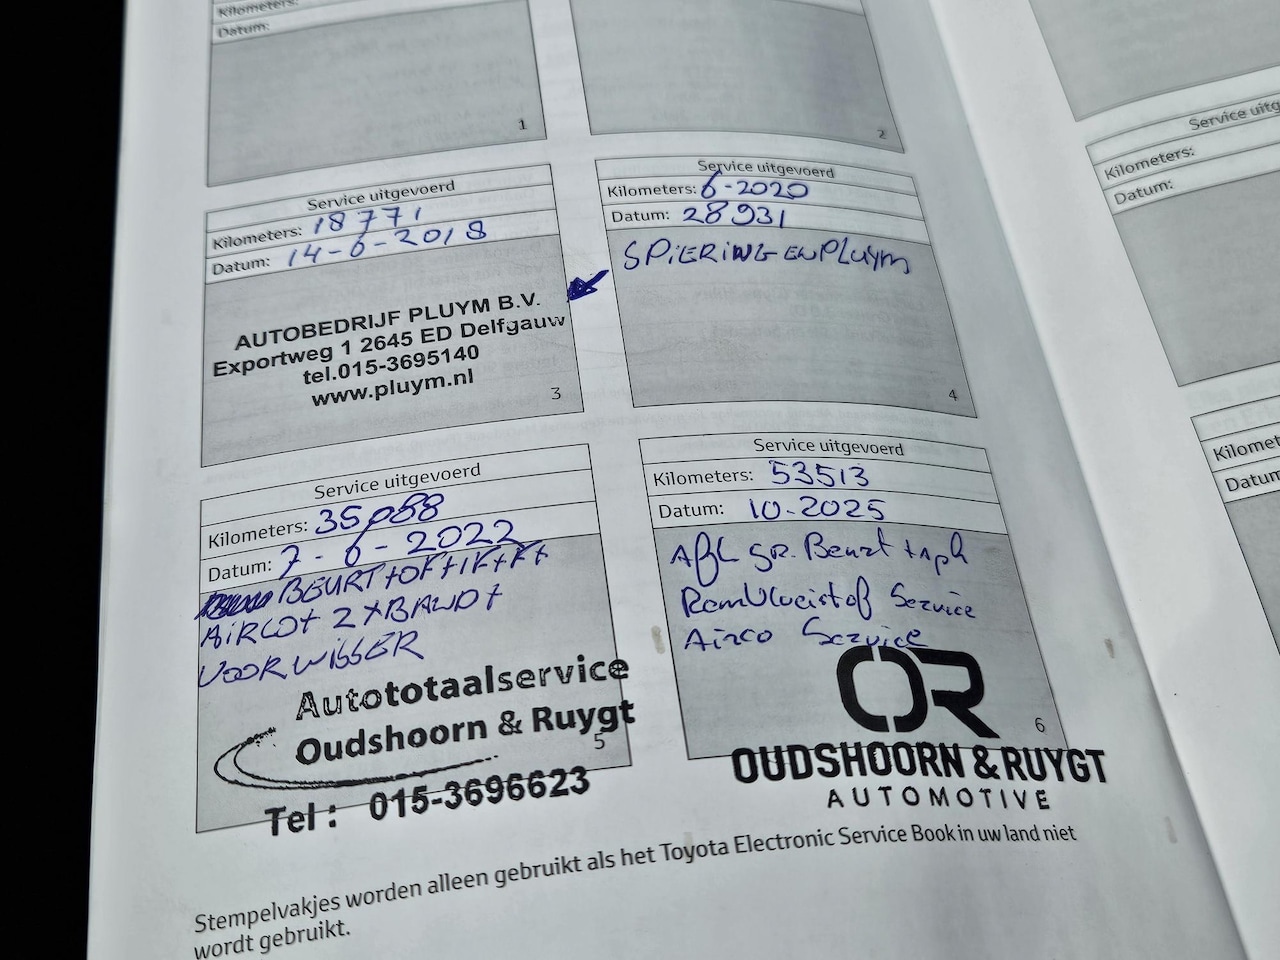 Kilometers:
Datum:
1
2
Service uitgevoerd
Kilometers: 18771
Datum: 14-6-2018
AUTOBEDRIJF PLUYM B.V.
Exportweg 1 2645 ED Delfgauw
tel.015-3695140
www.pluym.nl
3
Service uitgevoerd
Kilometers: 6-2020
Datum: 28931
SPIERING EN PLUYM
4
Service uitgevoerd
Kilometers: 35088
Datum: 7-6-2022
BEURT+OF+IF+FF+
AIRCO+ 2XBAND+
VOORWISSER
Autototaalservice
Oudshoorn & Ruygt
5
Tel : 015-3696623
Service uitgevoerd
Kilometers: 53513
Datum: 10-2025
Afl gr. Beurt + apk
Remvloeistof Service
Airco Service
OR
6
OUDSHOORN & RUYGT
AUTOMOTIVE
Stempelvakjes worden alleen gebruikt als het Toyota Electronic Service Book in uw land niet
wordt gebruikt.
Service uitg
Kilometers:
Datum:
Kilomet
Datum